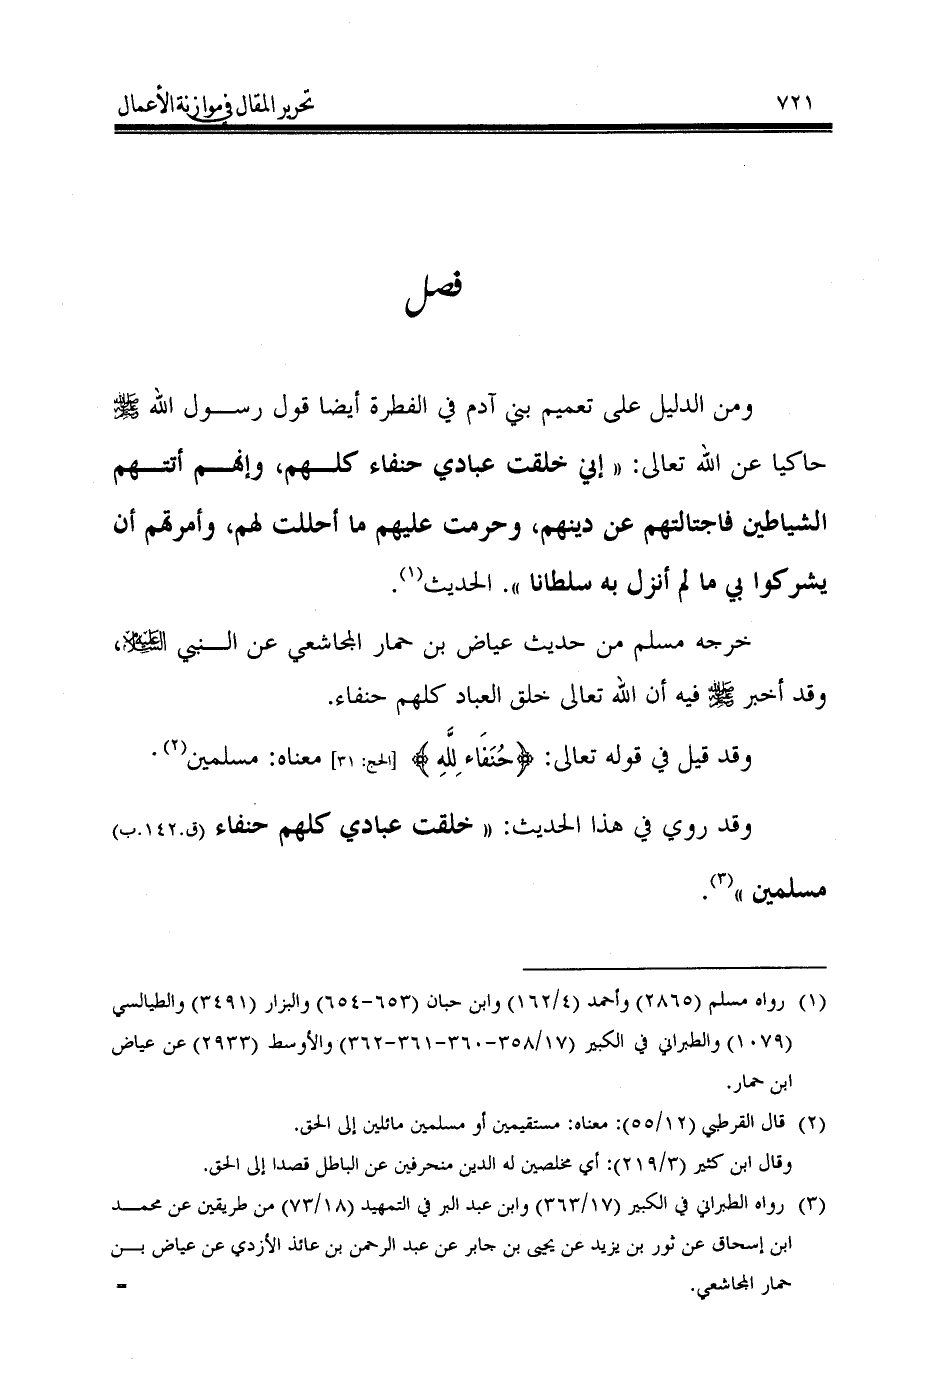 ٧٢١ تحرير المقال في موازنة الأعمال
فصل
ومن الدليل على تعميم بني آدم في الفطرة أيضا قول رسول الله ﷺ
حاكيا عن الله تعالى: « إني خلقت عبادي حنفاء كلهم، وإنهم أتتهم
الشياطين فاجتالتهم عن دينهم، وحرمت عليهم ما أحللت لهم، وأمرتهم أن
يشركوا بي ما لم أنزل به سلطانا ». الحديث(١).
خرجه مسلم من حديث عياض بن حمار المجاشعي عن النبي العَلَيْهِ السَّلَام،
وقد أخبر ﷺ فيه أن الله تعالى خلق العباد كلهم حنفاء.
وقد قيل في قوله تعالى: ﴿حُنَفَاءَ لِلَّهِ﴾ [الحج: ٣١] معناه: مسلمين(٢).
وقد روي في هذا الحديث: « خلقت عبادي كلهم حنفاء (ق.١٤٢.ب)
مسلمين »(٣).
(١) رواه مسلم (٢٨٦٥) وأحمد (١٦٢/٤) وابن حبان (٦٥٣-٦٥٤) والبزار (٣٤٩١) والطيالسي
(١٠٧٩) والطبراني في الكبير (٣٥٨/١٧-٣٦٠-٣٦١-٣٦٢) والأوسط (٢٩٣٣) عن عياض
ابن حمار.
(٢) قال القرطبي (٥٥/١٢): معناه: مستقيمين أو مسلمين مائلين إلى الحق.
وقال ابن كثير (٢١٩/٣): أي مخلصين له الدين منحرفين عن الباطل قصدا إلى الحق.
(٣) رواه الطبراني في الكبير (٣٦٣/١٧) وابن عبد البر في التمهيد (٧٣/١٨) من طريقين عن محمد
ابن إسحاق عن ثور بن يزيد عن يحيى بن جابر عن عبد الرحمن بن عائذ الأزدي عن عياض بن
حمار المجاشعي. =